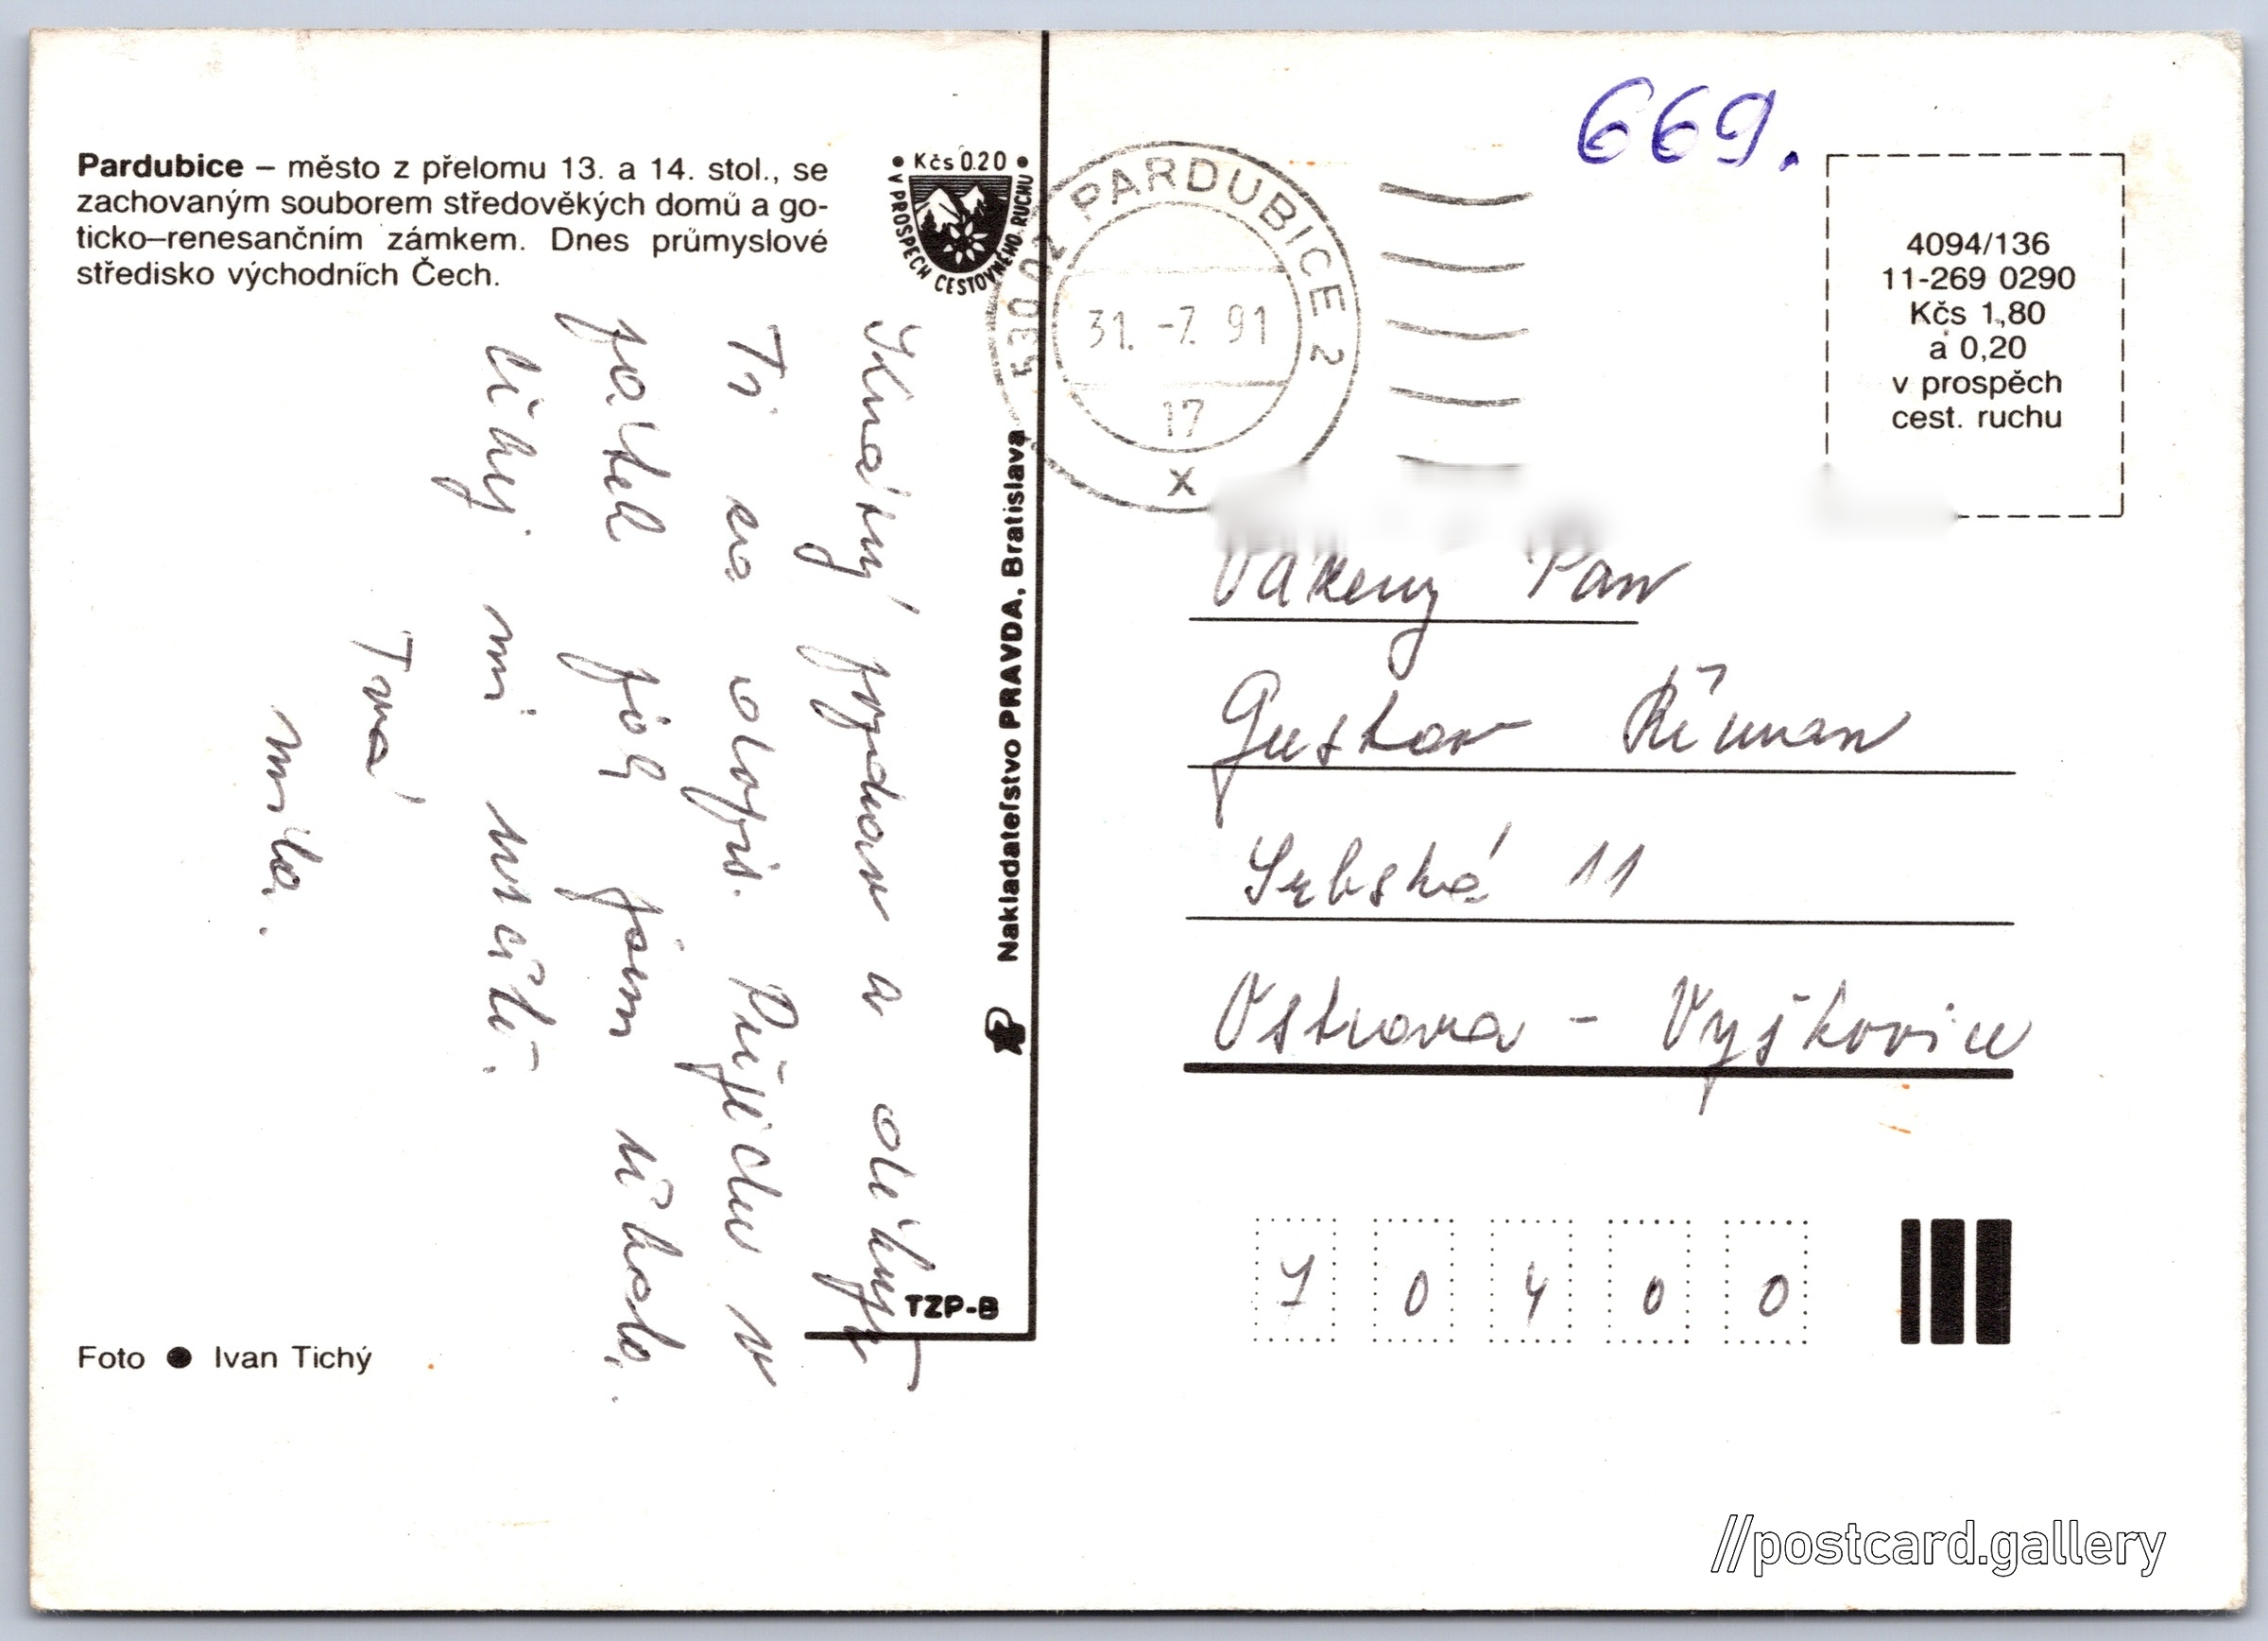 669.
Pardubice – město z přelomu 13. a 14. stol., se
zachovaným souborem středověkých domů a go-
ticko–renesančním zámkem. Dnes průmyslové
středisko východních Čech.
Kčs 0.20
V PROSPĚCH CESTOVNÉHO RUCHU
530 02 PARDUBICE 2
31. -7. 91
17
x
4094/136
11-269 0290
Kčs 1,80
a 0,20
v prospěch
cest. ruchu
Krásný pozdrav a
Ti za dopis. Přijedu v
pátek jak jsem
Tvá
Nakladateľstvo PRAVDA, Bratislava
TZP-B
Vážený Pan
Gustav Říman
Srbská 11
Ostrava - Vyškovice
70400
Foto ● Ivan Tichý
//postcard.gallery